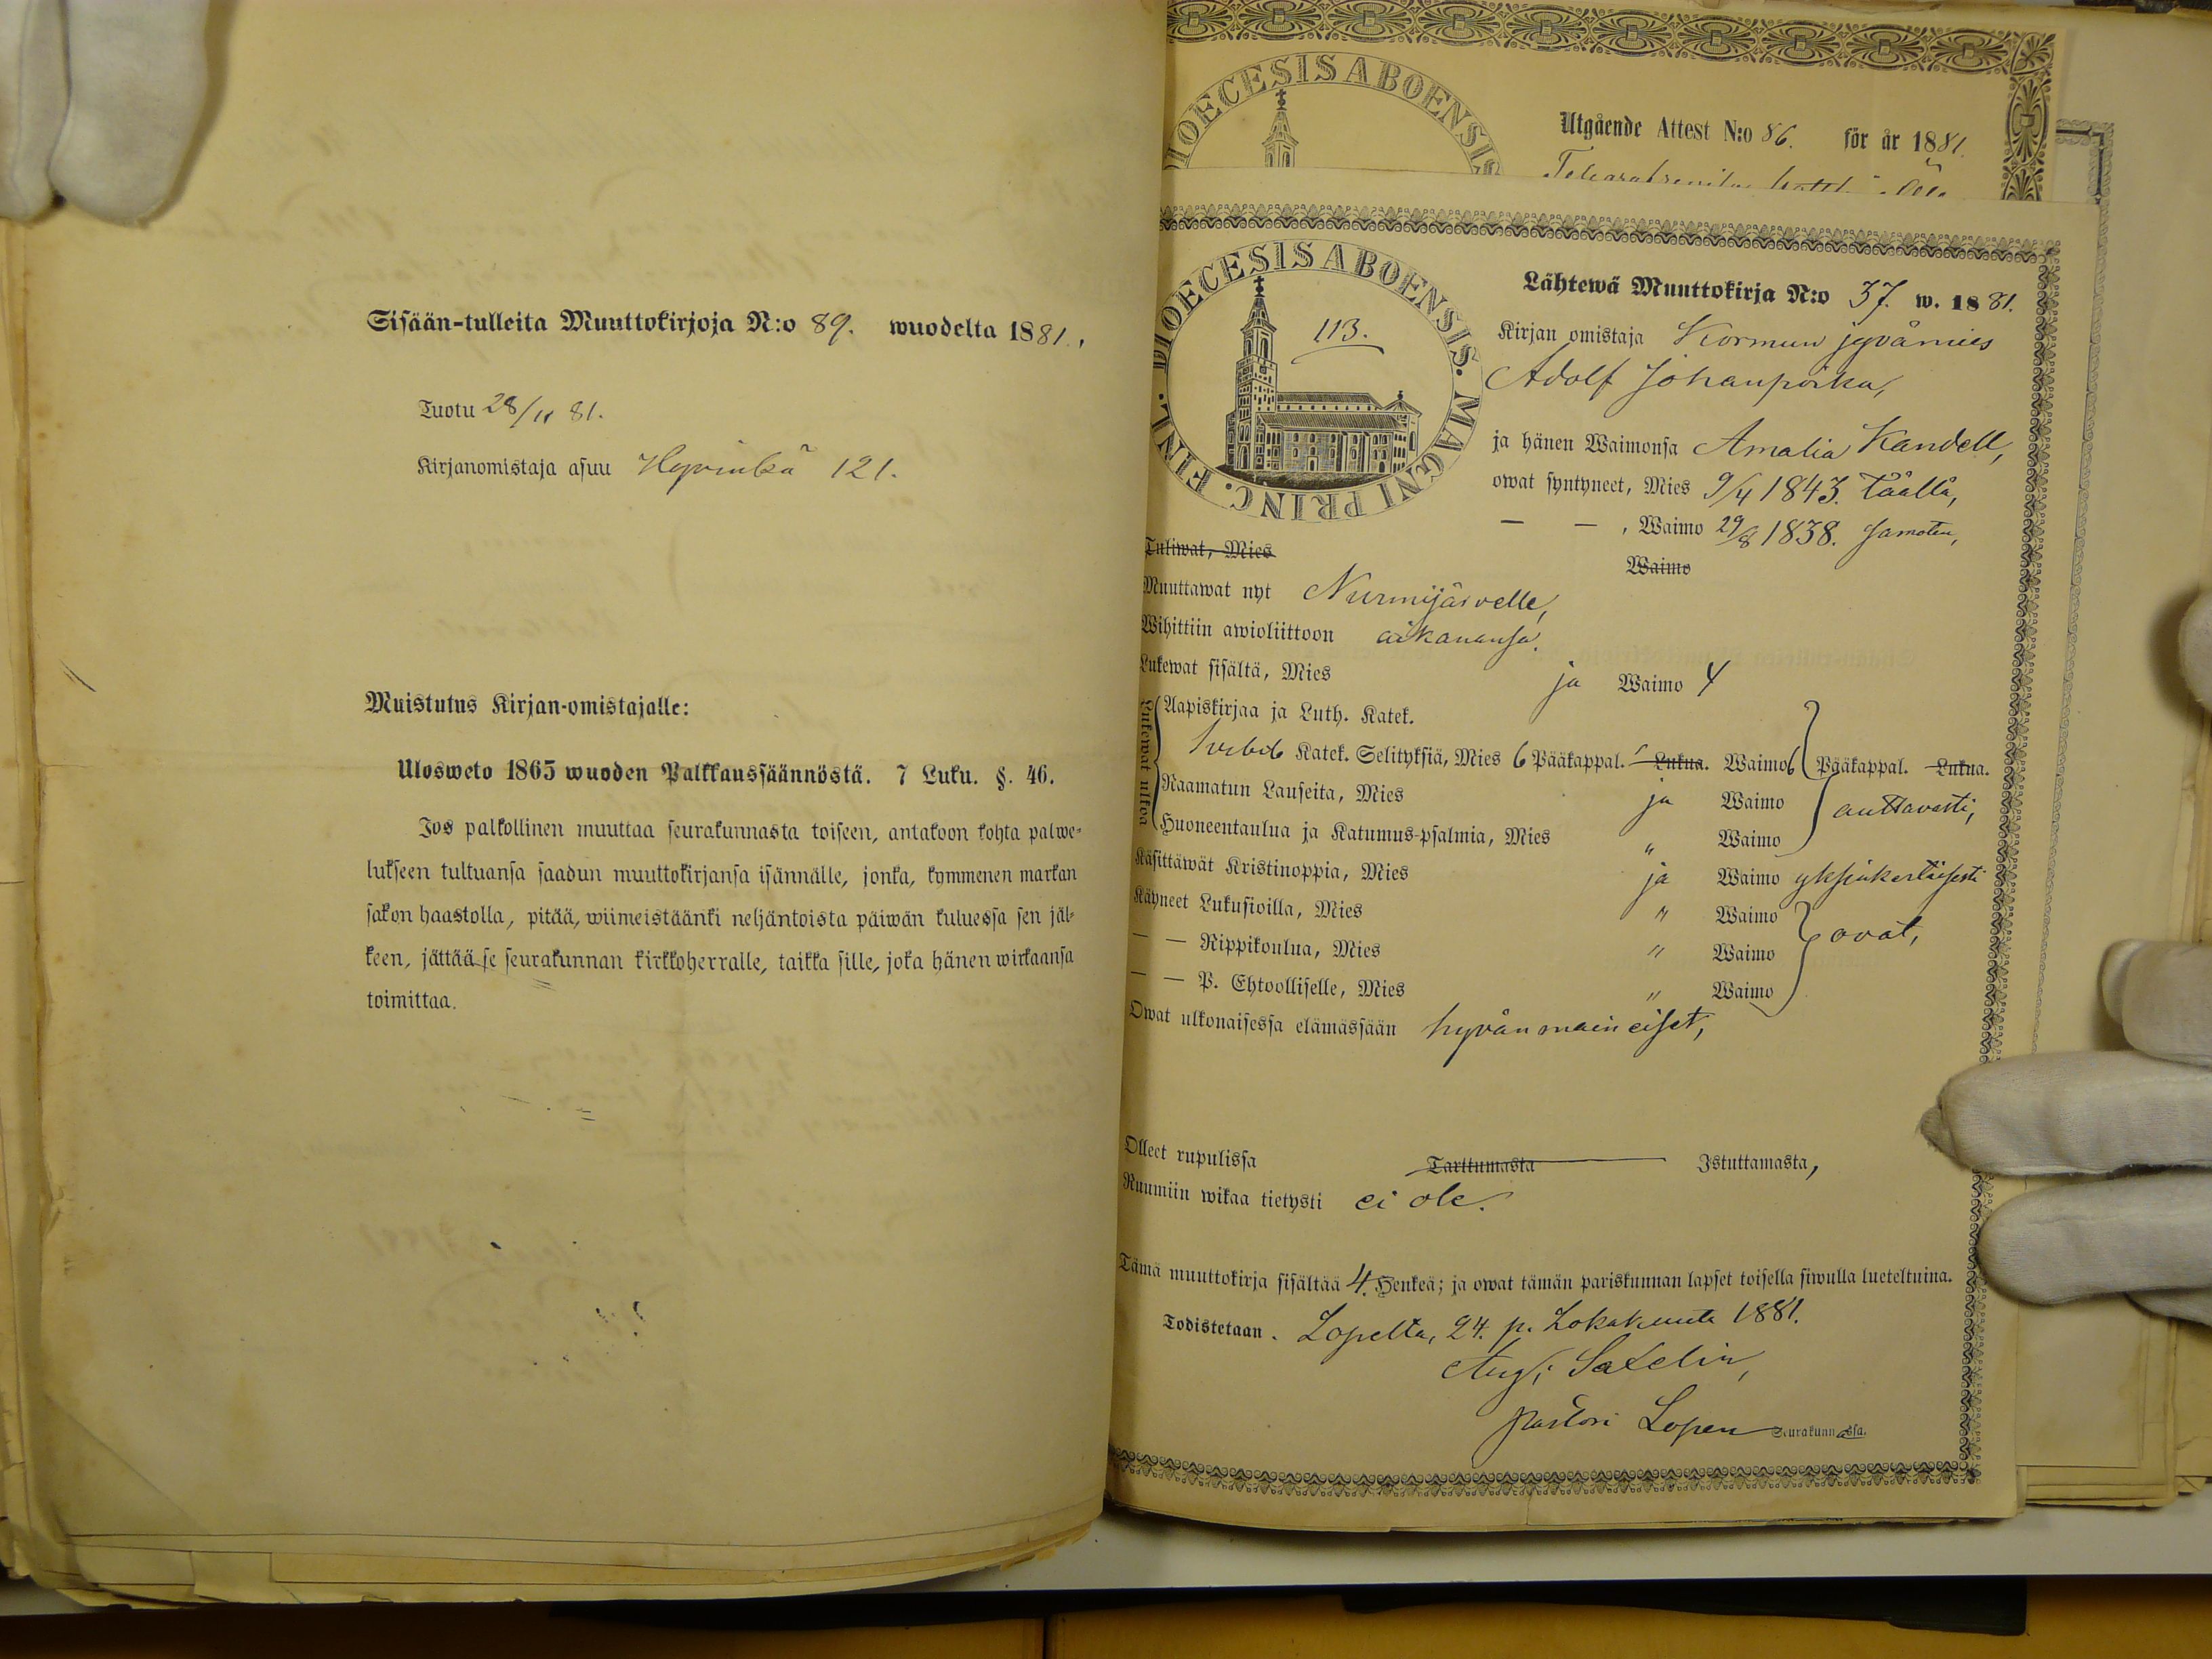 Sisään-tulleita Muuttokirjoja N:o 89. wuodelta 1881.
Tuotu 28/11 81.
Kirjanomistaja asuu Hyvinkä 121.
Muistutus Kirjan-omistajalle:
Ulosweto 1865 wuoden Palkkaussäännöstä. 7 Luku. §. 46.
Jos palkollinen muuttaa seurakunnasta toiseen, antakoon kohta palwe-
lukseen tultuansa saadun muuttokirjansa isännälle, jonka, kymmenen markan
sakon haastolla, pitää, wiimeistäänki neljäntoista päiwän kuluessa sen jäl-
keen, jättää se seurakunnan kirkkoherralle, taikka sille, joka hänen wirkaansa
toimittaa.
DIOECESIS ABOENSIS
Utgående Attest N:o 86. för år 1881.
DIOECESIS ABOENSIS. MAGNI PRINC. FINL.
113.
Lähtewä Muuttokirja N:o 37. w. 1881.
Kirjan omistaja Kormun jyvämies
Adolf Johanpoika,
ja hänen Waimonsa Amalia Kandell,
owat syntyneet, Mies 9/4 1843. Täällä,
— — , Waimo 29/8 1838. Samoten,
Tuliwat, Mies
Waimo
Muuttawat nyt Nurmijärvelle,
Wihittiin awioliittoon aikanansa.
Lukewat sisältä, Mies ja Waimo Y
Lukewat ulkoa
Aapiskirjaa ja Luth. Katek.
Katek. Selityksiä, Mies 6 Pääkappal. Lukua. Waimo 6 Pääkappal. Lukua.
Raamatun Lauseita, Mies ja Waimo auttavasti,
Huoneentaulua ja Katumus-psalmia, Mies „ Waimo
Käsittäwät Kristinoppia, Mies ja Waimo yksinkertaisesti
Käyneet Lukusioilla, Mies „ Waimo
— — Rippikoulua, Mies „ Waimo ovat,
— — P. Ehtoolliselle, Mies „ Waimo
Owat ulkonaisessa elämässään hyvänmaineiset,
Olleet rupulissa Tarttumasta Istuttamasta,
Ruumiin wikaa tietysti ei ole.
Tämä muuttokirja sisältää 4. Henkeä; ja owat tämän pariskunnan lapset toisella siwulla lueteltuina.
Todistetaan. Lopelta, 24. p. Lokakuuta 1881.
Pastori Lopen Seurakunnassa.